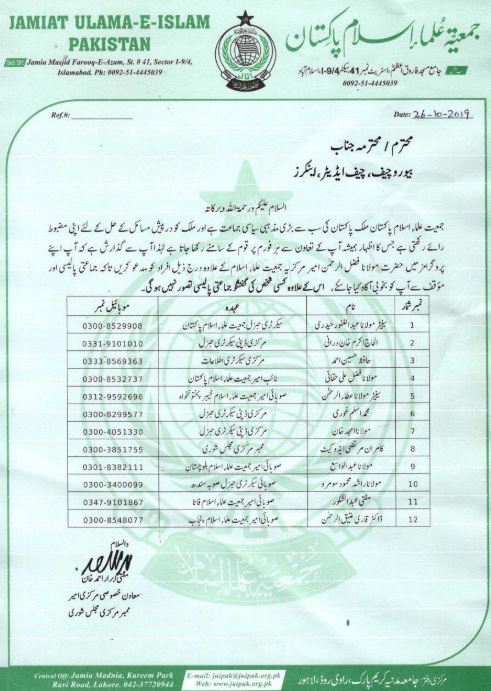 JAMIAT ULAMA-E-ISLAM
PAKISTAN
جمعیۃ علماء اسلام پاکستان
Sub Off: Jamia Masjid Farooq-E-Azam, St. # 41, Sector I-9/4,
Islamabad. Ph: 0092-51-4445039
جامع مسجد فاروق اعظم، اسٹریٹ نمبر 41 سیکٹر I-9/4، اسلام آباد
0092-51-4445039
Ref.#:
Date: 26-10-2019
محترم / محترمہ جناب
بیورو چیف، چیف ایڈیٹر، اینکرز
السلام علیکم ورحمۃ اللہ وبرکاتہ
جمعیت علماء اسلام پاکستان ملک پاکستان کی سب سے بڑی مذہبی سیاسی جماعت ہے اور ملک کو درپیش مسائل کے حل کے لئے اپنی مضبوط
رائے رکھتی ہے جس کا اظہار ہمیشہ آپ کے تعاون سے ہر فورم پر قوم کے سامنے رکھا جاتا ہے لہذا آپ سے گذارش ہے کہ آپ اپنے
پروگرامز میں حضرت مولانا فضل الرحمن امیر مرکزیہ جمعیت علماء اسلام کے علاوہ درج ذیل افراد کو مدعو کریں تاکہ جماعتی پالیسی اور
مؤقف سے آپ کو بخوبی آگاہ کیا جاسکے، اس کے علاوہ کسی شخص کی گفتگو جماعتی پالیسی تصور نہیں ہوگی۔
نمبر شمار نام عہدہ موبائیل نمبر
1 سینیٹر مولانا عبدالغفور حیدری سیکرٹری جنرل جمعیت علماء اسلام پاکستان 0300-8529908
2 الحاج اکرم خان درانی مرکزی ڈپٹی سیکرٹری جنرل 0331-9101010
3 حافظ حسین احمد مرکزی سیکرٹری اطلاعات 0333-8569363
4 مولانا فضل علی حقانی نائب امیر جمعیت علماء اسلام پاکستان 0300-8532737
5 سینیٹر مولانا عطاء الرحمن صوبائی امیر جمعیت علماء اسلام خیبر پختونخواہ 0312-9592696
6 محمد اسلم غوری مرکزی ڈپٹی سیکرٹری جنرل 0300-8299577
7 مولانا امجد خان مرکزی ڈپٹی سیکرٹری جنرل 0300-4051330
8 کامران مرتضی ایڈووکیٹ ممبر مرکزی مجلس شوری 0300-3851755
9 مولانا عبدالواسع صوبائی امیر جمعیت علماء اسلام بلوچستان 0301-8382111
10 مولانا راشد محمود سومرو صوبائی سیکرٹری جنرل صوبہ سندھ 0300-3400099
11 مفتی عبدالشکور صوبائی امیر جمعیت علماء اسلام فاٹا 0347-9101867
12 ڈاکٹر قاری عتیق الرحمن صوبائی امیر جمعیت علماء اسلام پنجاب 0300-8548077
والسلام
مفتی ابرار احمد خان
معاون خصوصی مرکزی امیر
ممبر مرکزی مجلس شوری
جمعیۃ علماء اسلام
Central Off: Jamia Madnia, Kareem Park
Ravi Road, Lahore. 042-37720944
E-mail: juipak@juipak.org.pk
Web: www.juipak.org.pk
مرکزی دفتر: جامعہ مدنیہ کریم پارک، راوی روڈ، لاہور